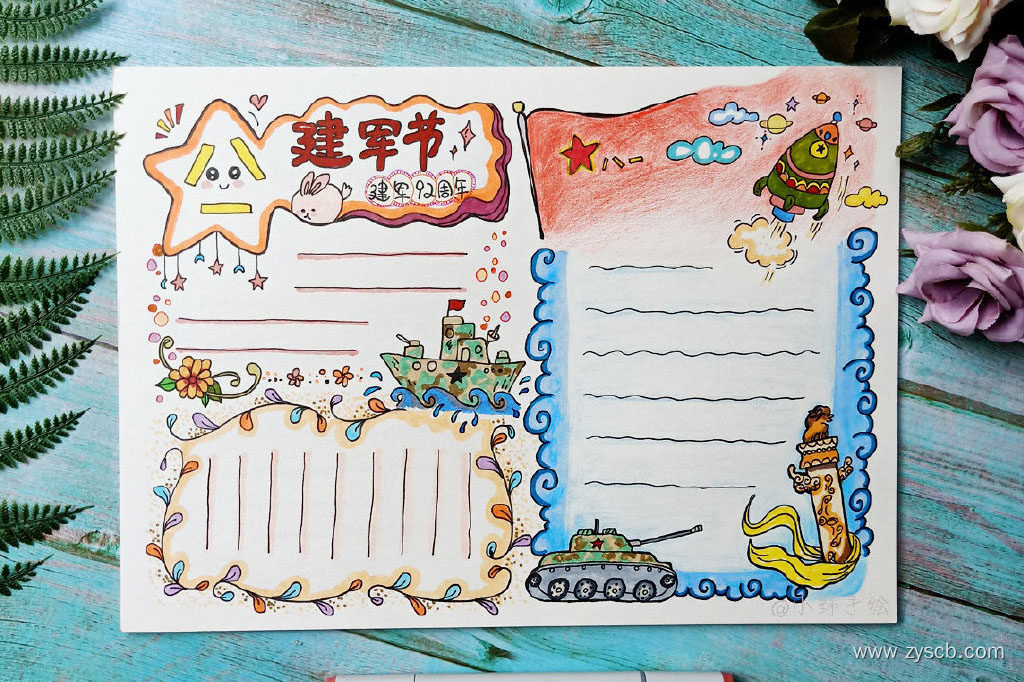 八
一
建军节
建军92周年
八一
@小环手绘
www.zyscb.com